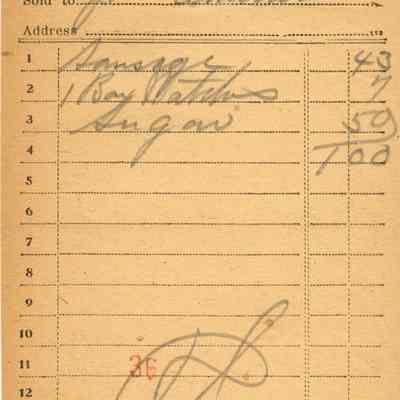 Sold to
Address
1 Sausage 43
2 1 Box Matches 7
3 Sugar 50
4 100
5
6
7
8
9
10
11 36
12